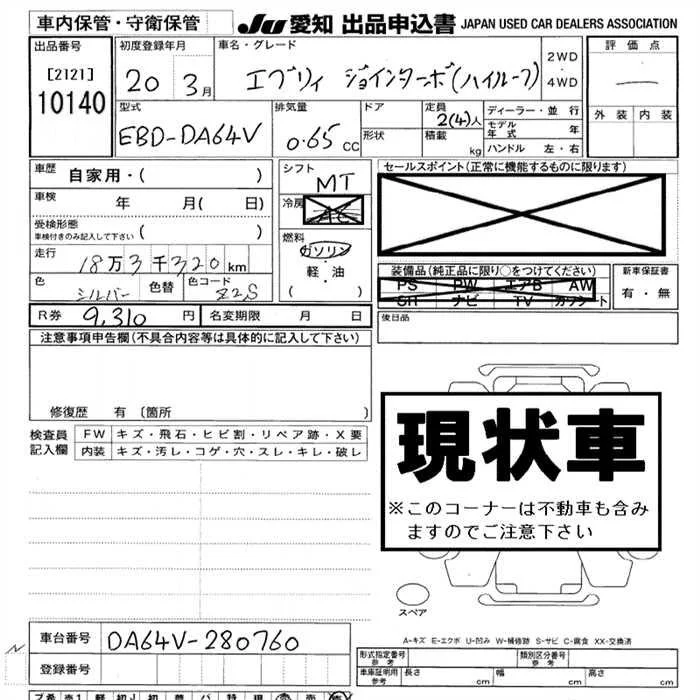 車内保管・守衛保管
JU 愛知 出品申込書 JAPAN USED CAR DEALERS ASSOCIATION
出品番号 初度登録年月 車名・グレード 2WD 評価点
[2121] 20 3月 エブリィ ジョインターボ(ハイルーフ) ・ 4WD
10140
型式 排気量 ドア 定員 ディーラー・並行 外装 内装
EBD-DA64V 0.65 cc 2(4)人 モデル年式 年
形状 積載 kg ハンドル 左・右
車歴 自家用・( ) シフト MT セールスポイント(正常に機能するものに限ります)
車検 年 月( 日) 冷房
受検形態
車検付きのみ記入して下さい ( ) 燃料
ガソリン
走行 18万3千320km 軽・油 装備品(純正品に限り○をつけてください) 新車保証書
色 シルバー 色替 色コード Z2S ( ) PS PW エアB AW 有・無
SH ナビ TV カワシート
R券 9,310円 名変期限 月 日 後日品
注意事項申告欄(不具合内容等は具体的に記入して下さい)
修復歴 有〔箇所 〕
現状車
※このコーナーは不動車も含み
ますのでご注意下さい
検査員 FW キズ・飛石・ヒビ割・リペア跡・X要
記入欄 内装 キズ・汚レ・コゲ・穴・スレ・キレ・破レ
スペア
A-キズ E-エクボ U-凹み W-補修跡 S-サビ C-腐食 XX-交換済
車台番号 DA64V-280760
登録番号
形式指定番号 参考 類別区分番号 参考
車庫証明用 参考 長さ cm 幅 cm 高さ cm